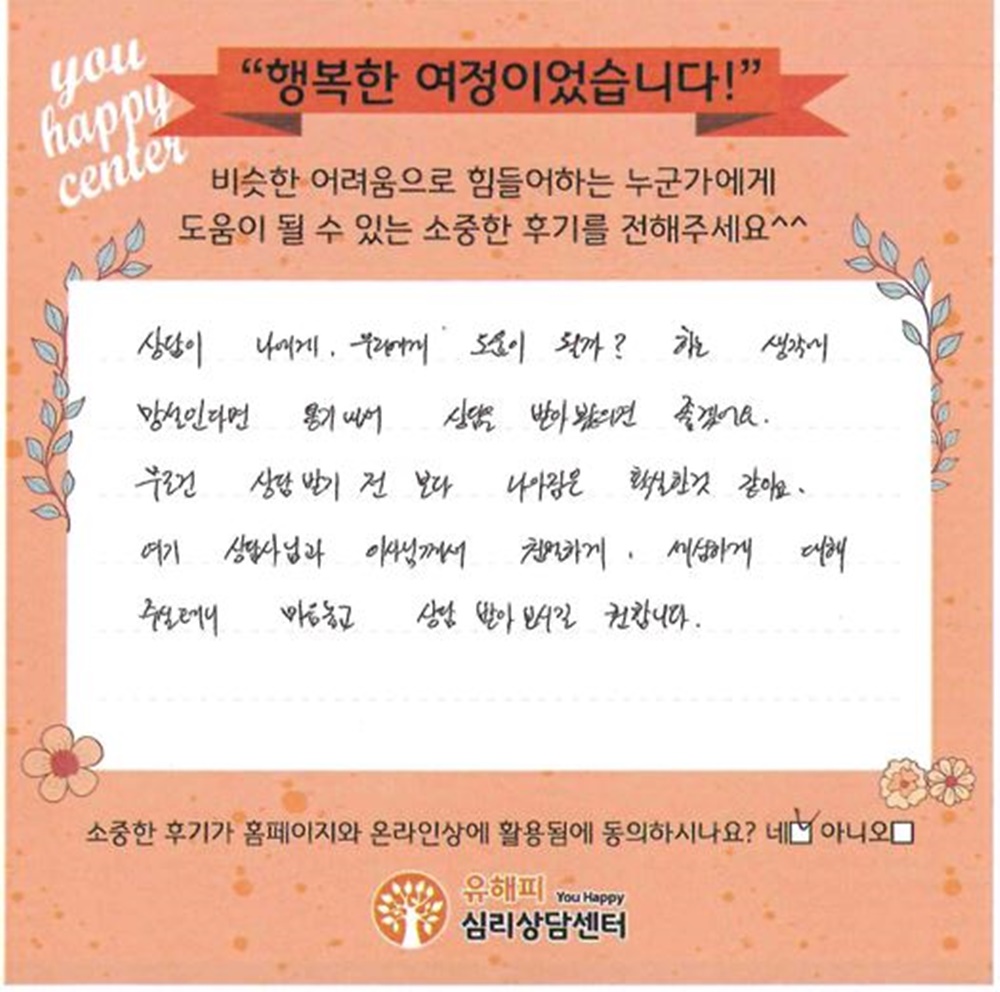 you
happy
center
“행복한 여정이었습니다!”
비슷한 어려움으로 힘들어하는 누군가에게
도움이 될 수 있는 소중한 후기를 전해주세요^^
상담이 나에게, 우리에게 도움이 될까? 하는 생각에
망설인다면 용기 내어 상담을 받아 봤으면 좋겠어요.
우리건 상담 받기 전 보다 나아짐은 확실한것 같아요.
여기 상담사님과 이사님께서 친절하게, 세심하게 대해
주실테니 마음놓고 상담 받아 보시길 권합니다.
소중한 후기가 홈페이지와 온라인상에 활용됨에 동의하시나요? 네 아니오
유해피 You Happy
심리상담센터